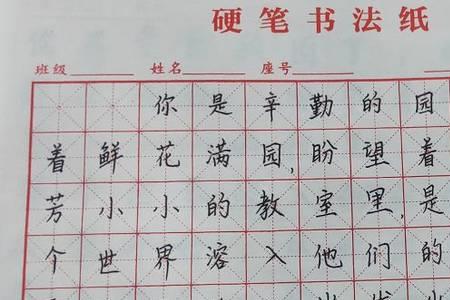 硬笔书法纸
班级 姓名 座号
你是辛勤的园
着鲜花满园,盼望着
芳小小的教室里,是
个世界溶入他们的